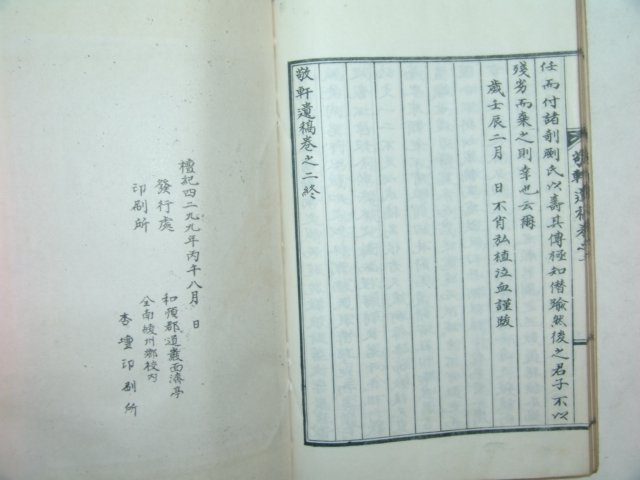 任而付諸剞劂氏以壽其傳極知僭踰然後之君子不以
殘劣而棄之則幸也云爾
歲壬辰二月　日不肖弘植泣血謹跋
敬軒遺稿卷之二終
敬軒遺稿卷之二
檀紀四二九九年丙午八月　日
發行處　和順郡道巖面濟亭
印刷所　全南綾州鄕校内
杏壇印刷所